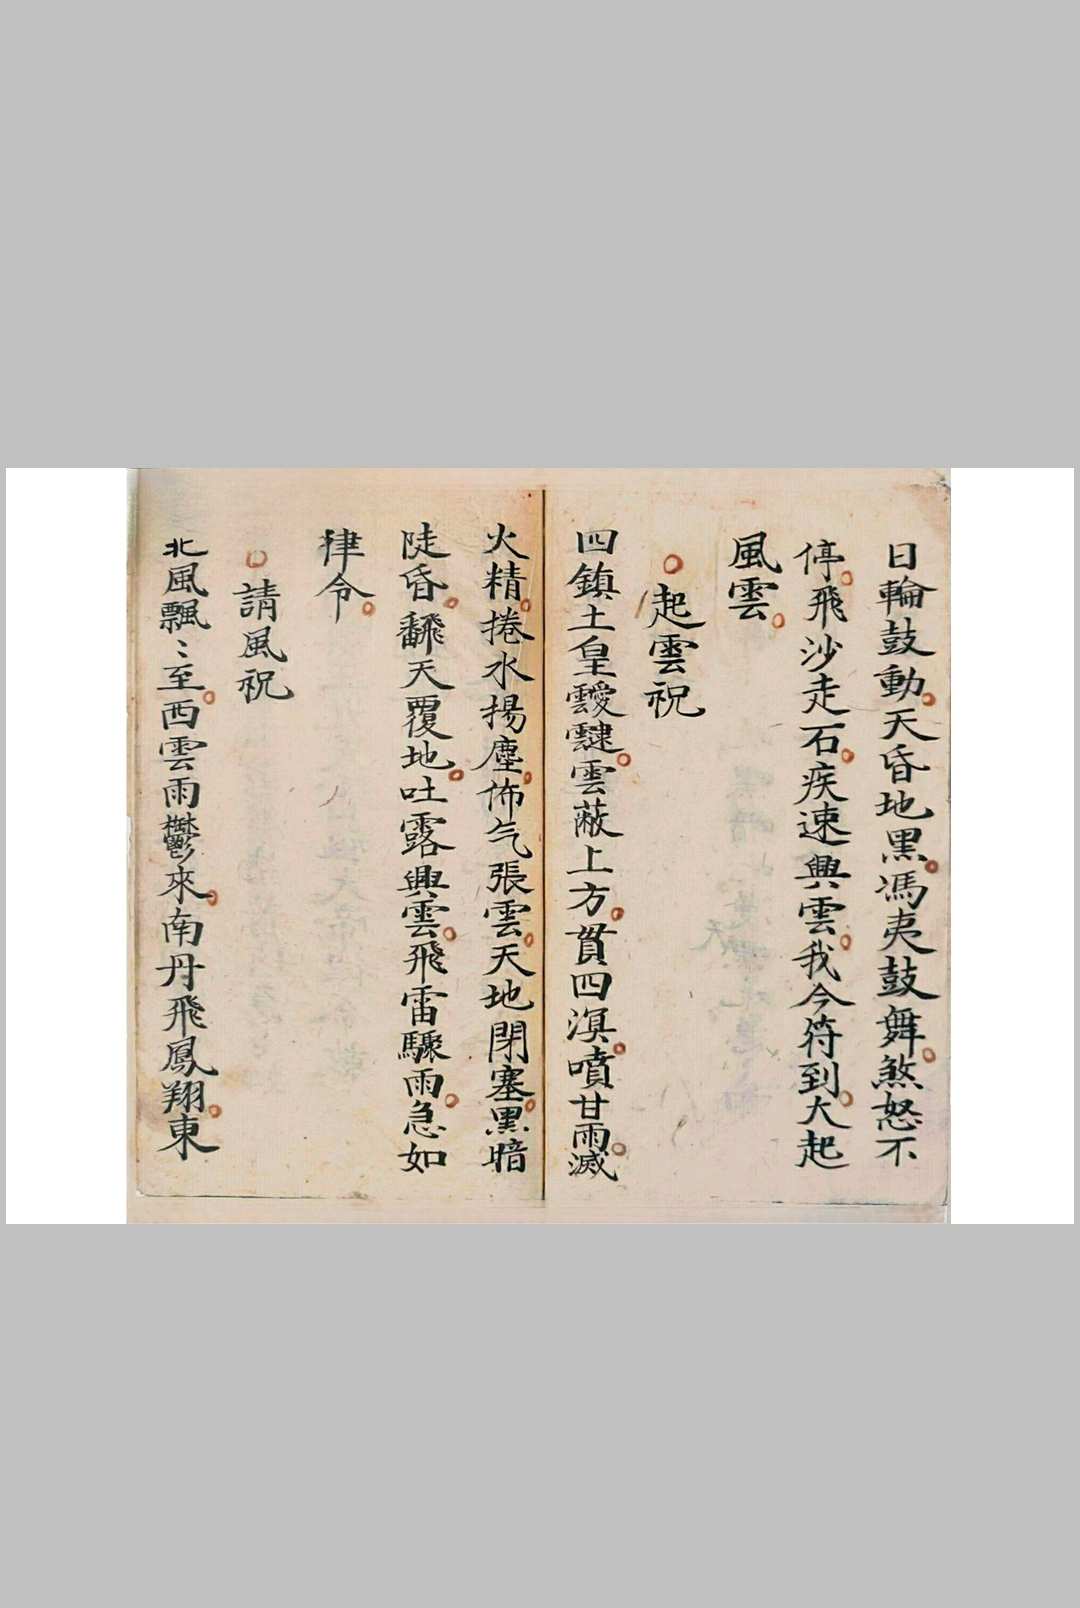 日輪鼓動天昏地黑馮夷鼓舞煞怒不
停飛沙走石疾速興雲我今符到大起
風雲
起雲祝
四鎮土皇靉靆雲蔽上方貫四溟噴甘雨滅
火精捲水揚塵佈气張雲天地閉塞黑暗
陡昏翻天覆地吐露興雲飛雷驟雨急如
律令
請風祝
北風飄〻至西雲雨鬱來南丹飛鳳翔東